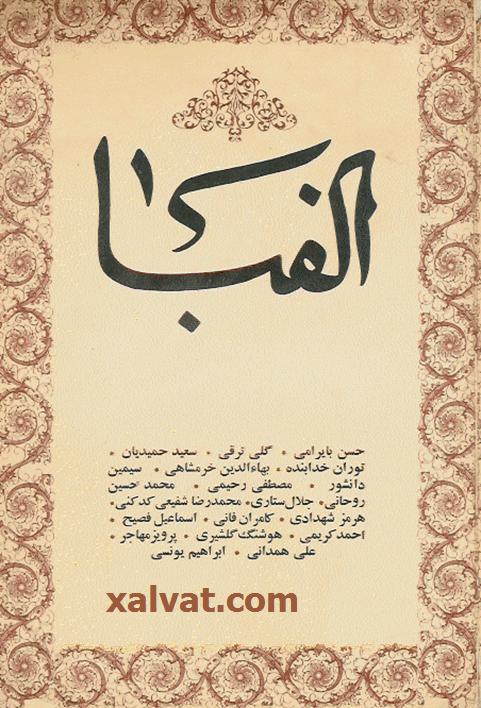 الفبا
حسن بایرامی • گلی ترقی • سعید حمیدیان •
توران خدابنده • بهاءالدین خرمشاهی • سیمین
دانشور • مصطفی رحیمی • محمد حسین
روحانی • جلال ستاری • محمدرضا شفیعی کدکنی •
هرمز شهدادی • کامران فانی • اسماعیل فصیح •
احمد کریمی • هوشنگ گلشیری • پرویز مهاجر •
علی همدانی • ابراهیم یونسی
xalvat.com